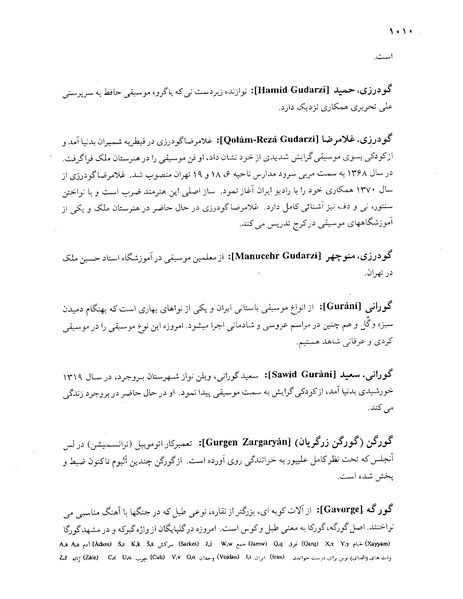 ۱۰۱۰
است.
گودرزی، حمید [Hamid Gudarzi]: نوازنده زبردست نی که باگروه موسیقی حافظ به سرپرستی
علی تحریری همکاری نزدیک دارد.
گودرزی، غلامرضا [Qolám-Rezá Gudarzi]: غلامرضاگودرزی در قیطریه شمیران بدنیا آمد و
ازکودکی بسوی موسیقی گرایش شدیدی از خود نشان داد، او فن موسیقی را در هنرستان ملک فراگرفت.
در سال ۱۳۶۸ به سمت مربی سرود مدارس ناحیه ۶، ۱۸ و ۱۹ تهران منصوب شد. غلامرضاگودرزی از
سال ۱۳۷۰ همکاری خود را با رادیو ایران آغاز نمود. ساز اصلی این هنرمند ضرب است و با نواختن
سنتور، نی و دف نیز آشنائی کامل دارد. غلامرضاگودرزی در حال حاضر در هنرستان ملک و یکی از
آموزشگاههای موسیقی درکرج تدریس می‌کند.
گودرزی، منوچهر [Manucehr Gudarzi]: از معلمین موسیقی در آموزشگاه استاد حسین ملک
در تهران.
گورانی [Gurání]: از انواع موسیقی باستانی ایران و یکی از نواهای بهاری است که بهنگام دمیدن
سبزه وگُل و هم چنین در مراسم عروسی و شادمانی اجرا میشود. امروزه این نوع موسیقی را در موسیقی
کردی و عرفانی شاهد هستیم.
گورانی، سعید [Sawid Guráni]: سعید گورانی، ویلن نواز شهرستان بروجرد، در سال ۱۳۱۹
خورشیدی بدنیا آمد، ازکودکی گرایش به سمت موسیقی پیدا نمود. او در حال حاضر در بروجرد زندگی
می کند.
گورگن (گورگن زرگریان) [Gurgen Zargaryán]: تعمیرکار اتوموبیل (ترانسمیشن) در لس
آنجلس که تحت نظرکامل علیپور به خوانندگی روی آورده است. ازگورگن چندین آلبوم تاکنون ضبط و
پخش شده است.
گورگه [Gavorge]: از آلات کوبه ای، بزرگتر از نقاره، نوعی طبل که در جنگها با آهنگ مناسبی می
نواختند. اصل گورگه، گورکا به معنی طبل و کوس است. امروزه درگلپایگان از واژه گبرکه و در مشهدگورگا